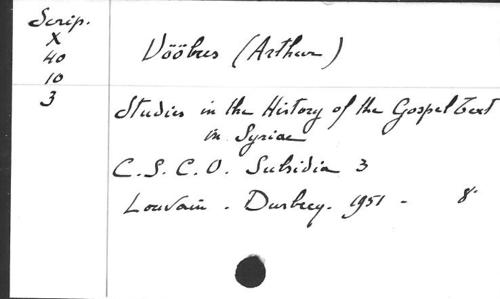 Scrip.
X
40
10
3
Vööbus (Arthur)
Studies in the History of the Gospel Text
in Syriac
C.S.C.O. Subsidia 3
Louvain - Durbecq. 1951 - 8°